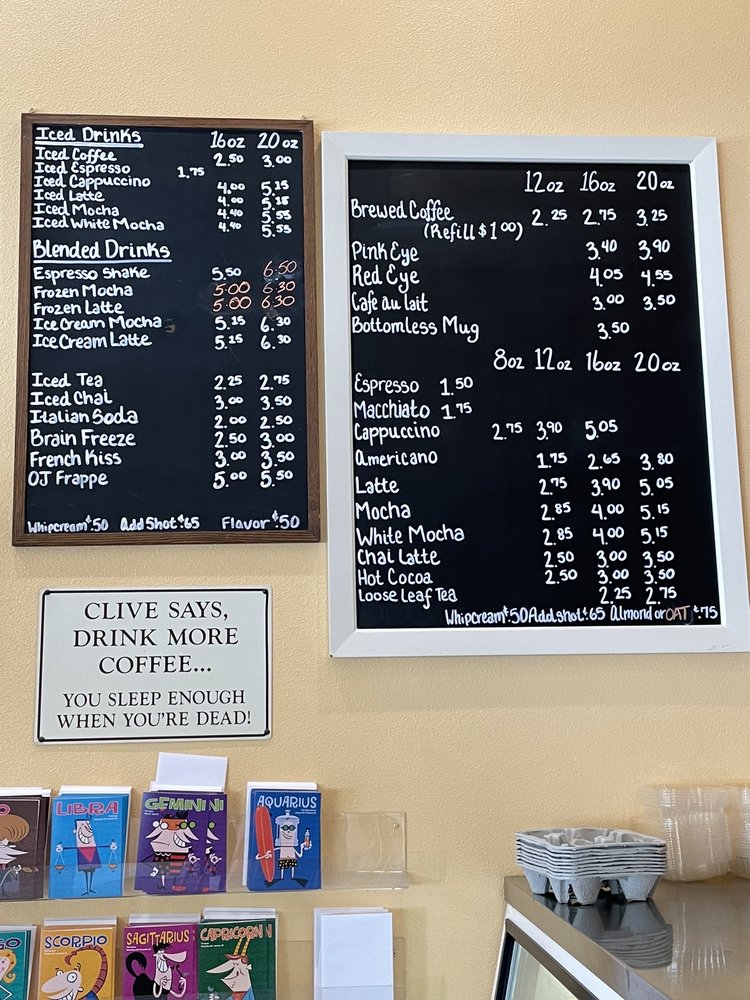 Iced Drinks 16oz 20oz
Iced Coffee 2.50 3.00
Iced Espresso 1.75
Iced Cappuccino 4.00 5.15
Iced Latte 4.00 5.15
Iced Mocha 4.40 5.55
Iced White Mocha 4.40 5.55
Blended Drinks
Espresso Shake 5.50 6.50
Frozen Mocha 5.00 6.30
Frozen Latte 5.00 6.30
Ice Cream Mocha 5.15 6.30
Ice Cream Latte 5.15 6.30
Iced Tea 2.25 2.75
Iced Chai 3.00 3.50
Italian Soda 2.00 2.50
Brain Freeze 2.50 3.00
French Kiss 3.00 3.50
OJ Frappe 5.00 5.50
Whipcream $.50 Add Shot $.65 Flavor $.50
12oz 16oz 20oz
Brewed Coffee 2.25 2.75 3.25
(Refill $1.00)
Pink Eye 3.40 3.90
Red Eye 4.05 4.55
Cafe au lait 3.00 3.50
Bottomless Mug 3.50
8oz 12oz 16oz 20oz
Espresso 1.50
Macchiato 1.75
Cappuccino 2.75 3.90 5.05
Americano 1.75 2.65 3.80
Latte 2.75 3.90 5.05
Mocha 2.85 4.00 5.15
White Mocha 2.85 4.00 5.15
Chai Latte 2.50 3.00 3.50
Hot Cocoa 2.50 3.00 3.50
Loose Leaf Tea 2.25 2.75
Whipcream $.50 Add shot $.65 Almond or OAT $.75
CLIVE SAYS,
DRINK MORE
COFFEE...
YOU SLEEP ENOUGH
WHEN YOU'RE DEAD!
LIBRA
GEMINI
AQUARIUS
SCORPIO
SAGITTARIUS
CAPRICORN